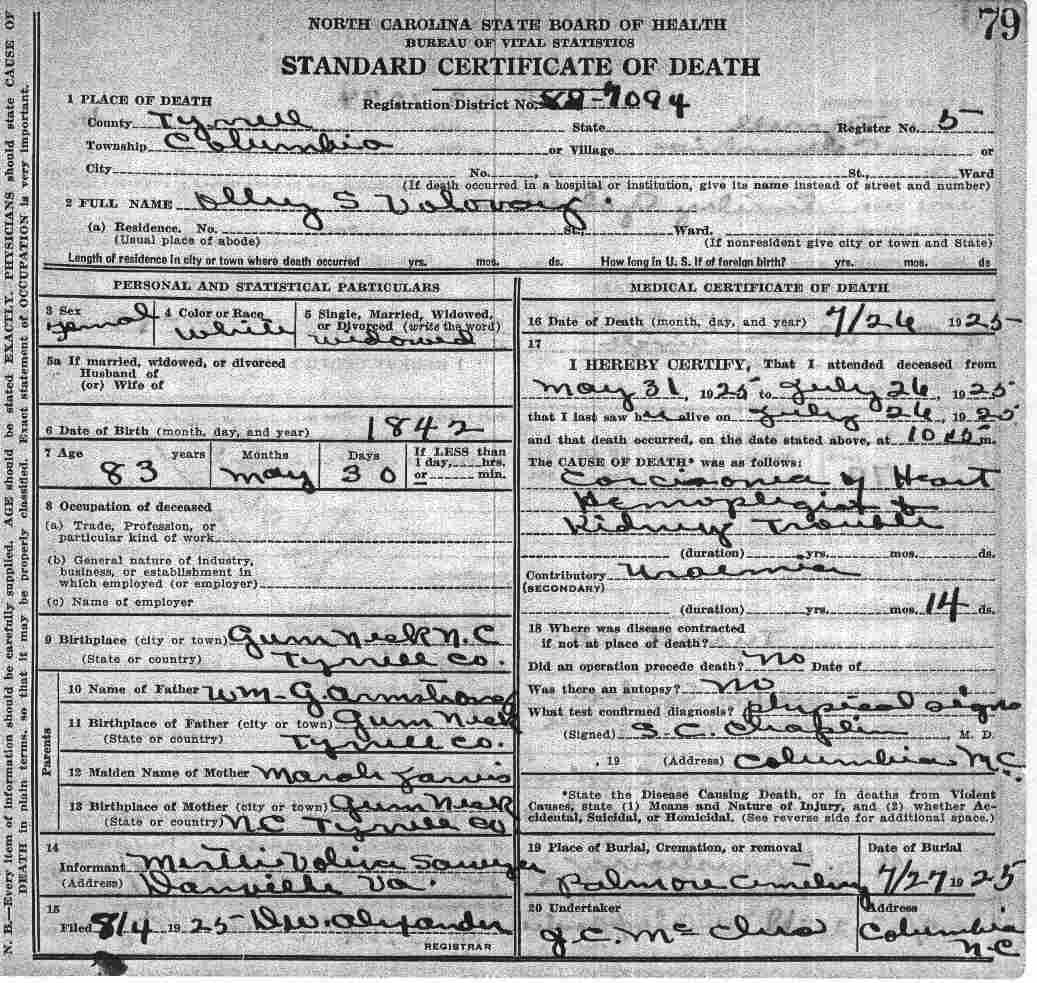 79
NORTH CAROLINA STATE BOARD OF HEALTH
BUREAU OF VITAL STATISTICS
STANDARD CERTIFICATE OF DEATH
1 PLACE OF DEATH
Registration District No. 89-7094
County Tyrrell State Register No. 5
Township Columbia or Village or
City No. , St., Ward
(If death occurred in a hospital or institution, give its name instead of street and number)
2 FULL NAME S
(a) Residence. No. St., Ward.
(Usual place of abode) (If nonresident give city or town and State)
Length of residence in city or town where death occurred yrs. mos. ds. How long in U. S. if of foreign birth? yrs. mos. ds
PERSONAL AND STATISTICAL PARTICULARS
3 Sex 4 Color or Race 5 Single, Married, Widowed, or Divorced (write the word)
Femal White Widowed
5a If married, widowed, or divorced
Husband of
(or) Wife of
6 Date of Birth (month, day, and year) 1842
7 Age years Months Days If LESS than
1 day, hrs.
or min.
83 May 30
8 Occupation of deceased
(a) Trade, Profession, or
particular kind of work
(b) General nature of industry,
business, or establishment in
which employed (or employer)
(c) Name of employer
9 Birthplace (city or town) Gum Neck N.C
(State or country) Tyrrell Co.
Parents
10 Name of Father Wm G Armstrong
11 Birthplace of Father (city or town) Gum Neck
(State or country) Tyrrell Co.
12 Maiden Name of Mother Jarvis
13 Birthplace of Mother (city or town) Gum Neck
(State or country) N.C Tyrrell Co
14
Informant Sawyer
(Address) Danville Va.
15
Filed 8/4 1925 D.W. Alexander
REGISTRAR
MEDICAL CERTIFICATE OF DEATH
16 Date of Death (month, day, and year) 7/26 1925
17
I HEREBY CERTIFY, That I attended deceased from
May 31, 1925 to July 26, 1925
that I last saw her alive on July 26, 1925
and that death occurred, on the date stated above, at m.
The CAUSE OF DEATH* was as follows:
of Heart
&
Kidney Trouble
(duration) yrs. mos. ds.
Contributory Uraemia
(SECONDARY)
(duration) yrs. mos. 14 ds.
18 Where was disease contracted
if not at place of death?
Did an operation precede death? No Date of
Was there an autopsy? No
What test confirmed diagnosis? Physical signs
(Signed) S.C. Chaplin, M. D.
, 19 (Address) Columbia N.C.
*State the Disease Causing Death, or in deaths from Violent
Causes, state (1) Means and Nature of Injury, and (2) whether Ac-
cidental, Suicidal, or Homicidal. (See reverse side for additional space.)
19 Place of Burial, Cremation, or removal Date of Burial
Cemetery 7/27 1925
20 Undertaker Address
J.C. Columbia
N.C
N. B.—Every item of information should be carefully supplied. AGE should be stated EXACTLY. PHYSICIANS should state CAUSE OF
DEATH in plain terms, so that it may be properly classified. Exact statement of OCCUPATION is very important.